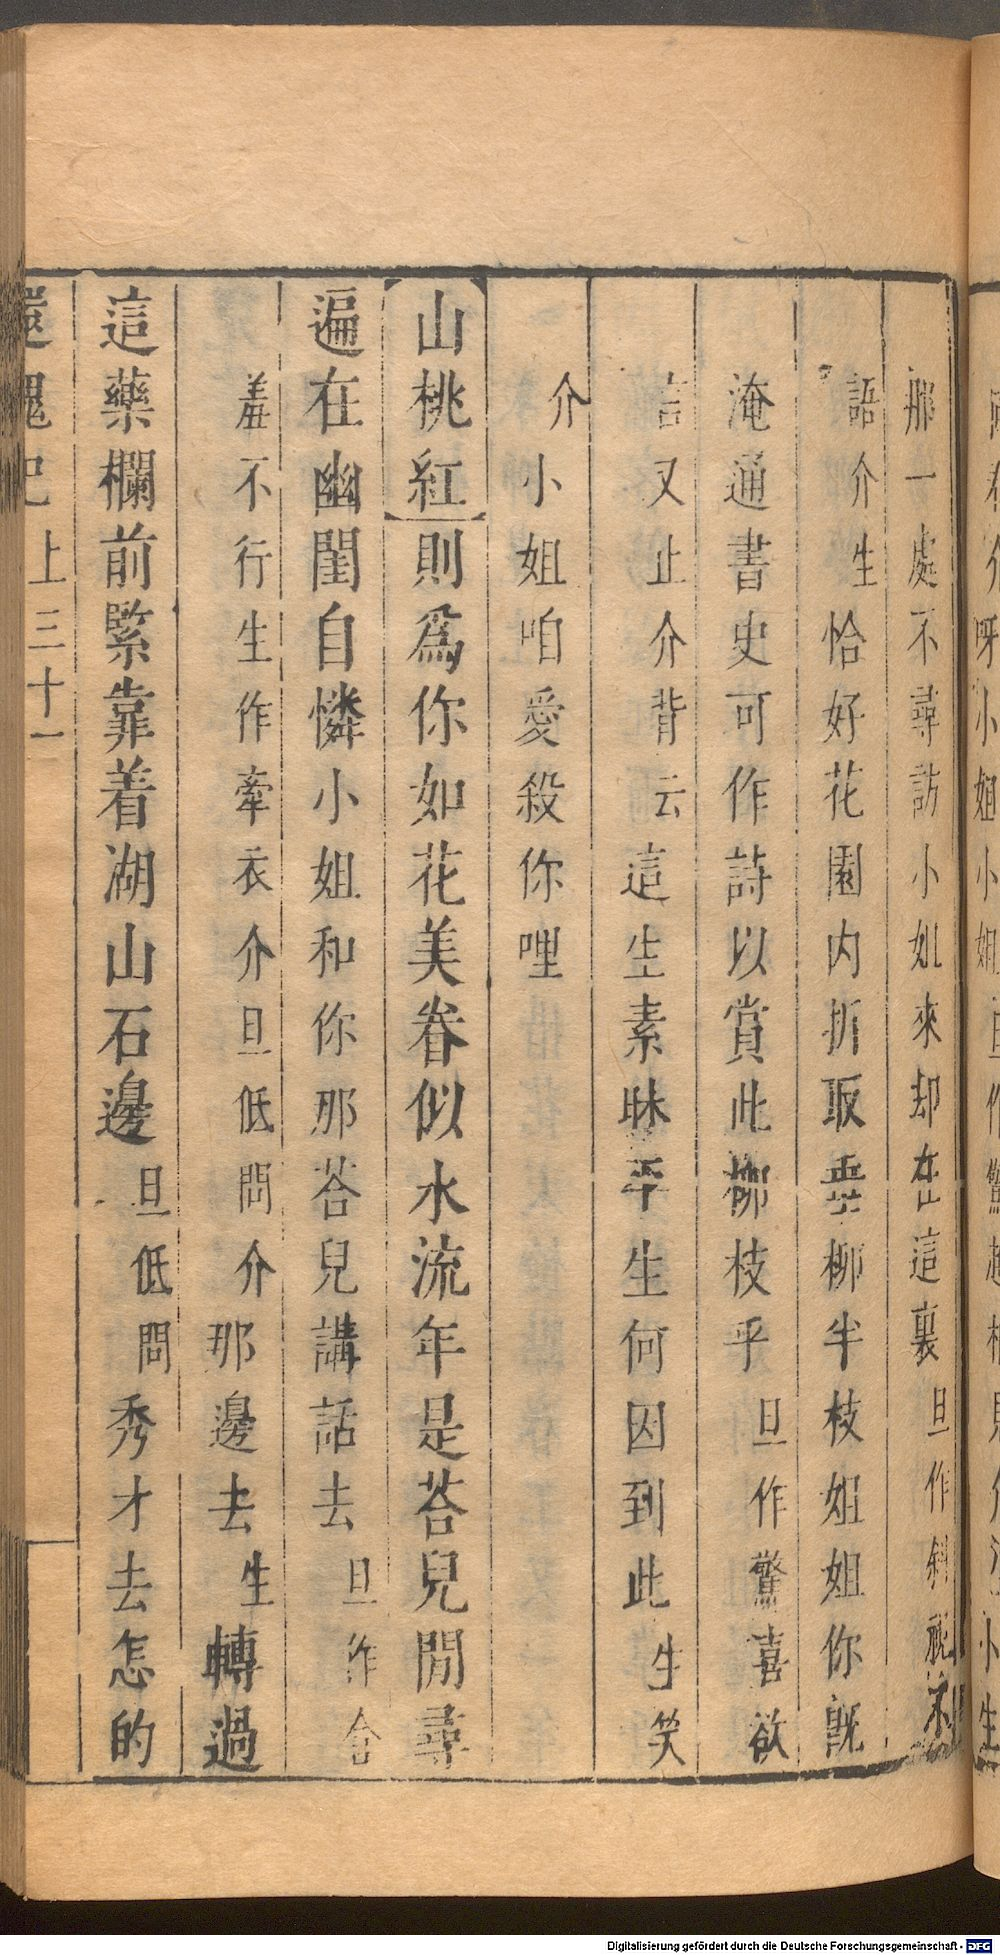 那一處不尋訪小姐來却在這裏旦作斜視不
語介生恰好花園内折取垂柳半枝姐姐你旣
淹通書史可作詩以賞此柳枝乎旦作驚喜欲
言又止介背云這生素昧平生何因到此生笑
介小姐咱愛殺你哩
【山桃紅】則爲你如花美眷似水流年是荅兒閒尋
遍在幽閨自憐小姐和你那荅兒講話去旦作含
羞不行生作牽衣介旦低問介那邊去生轉過
這藥欄前緊靠着湖山石邊旦低問秀才去怎的
還魂記 上 三十一
Digitalisierung gefördert durch die Deutsche Forschungsgemeinschaft - DFG